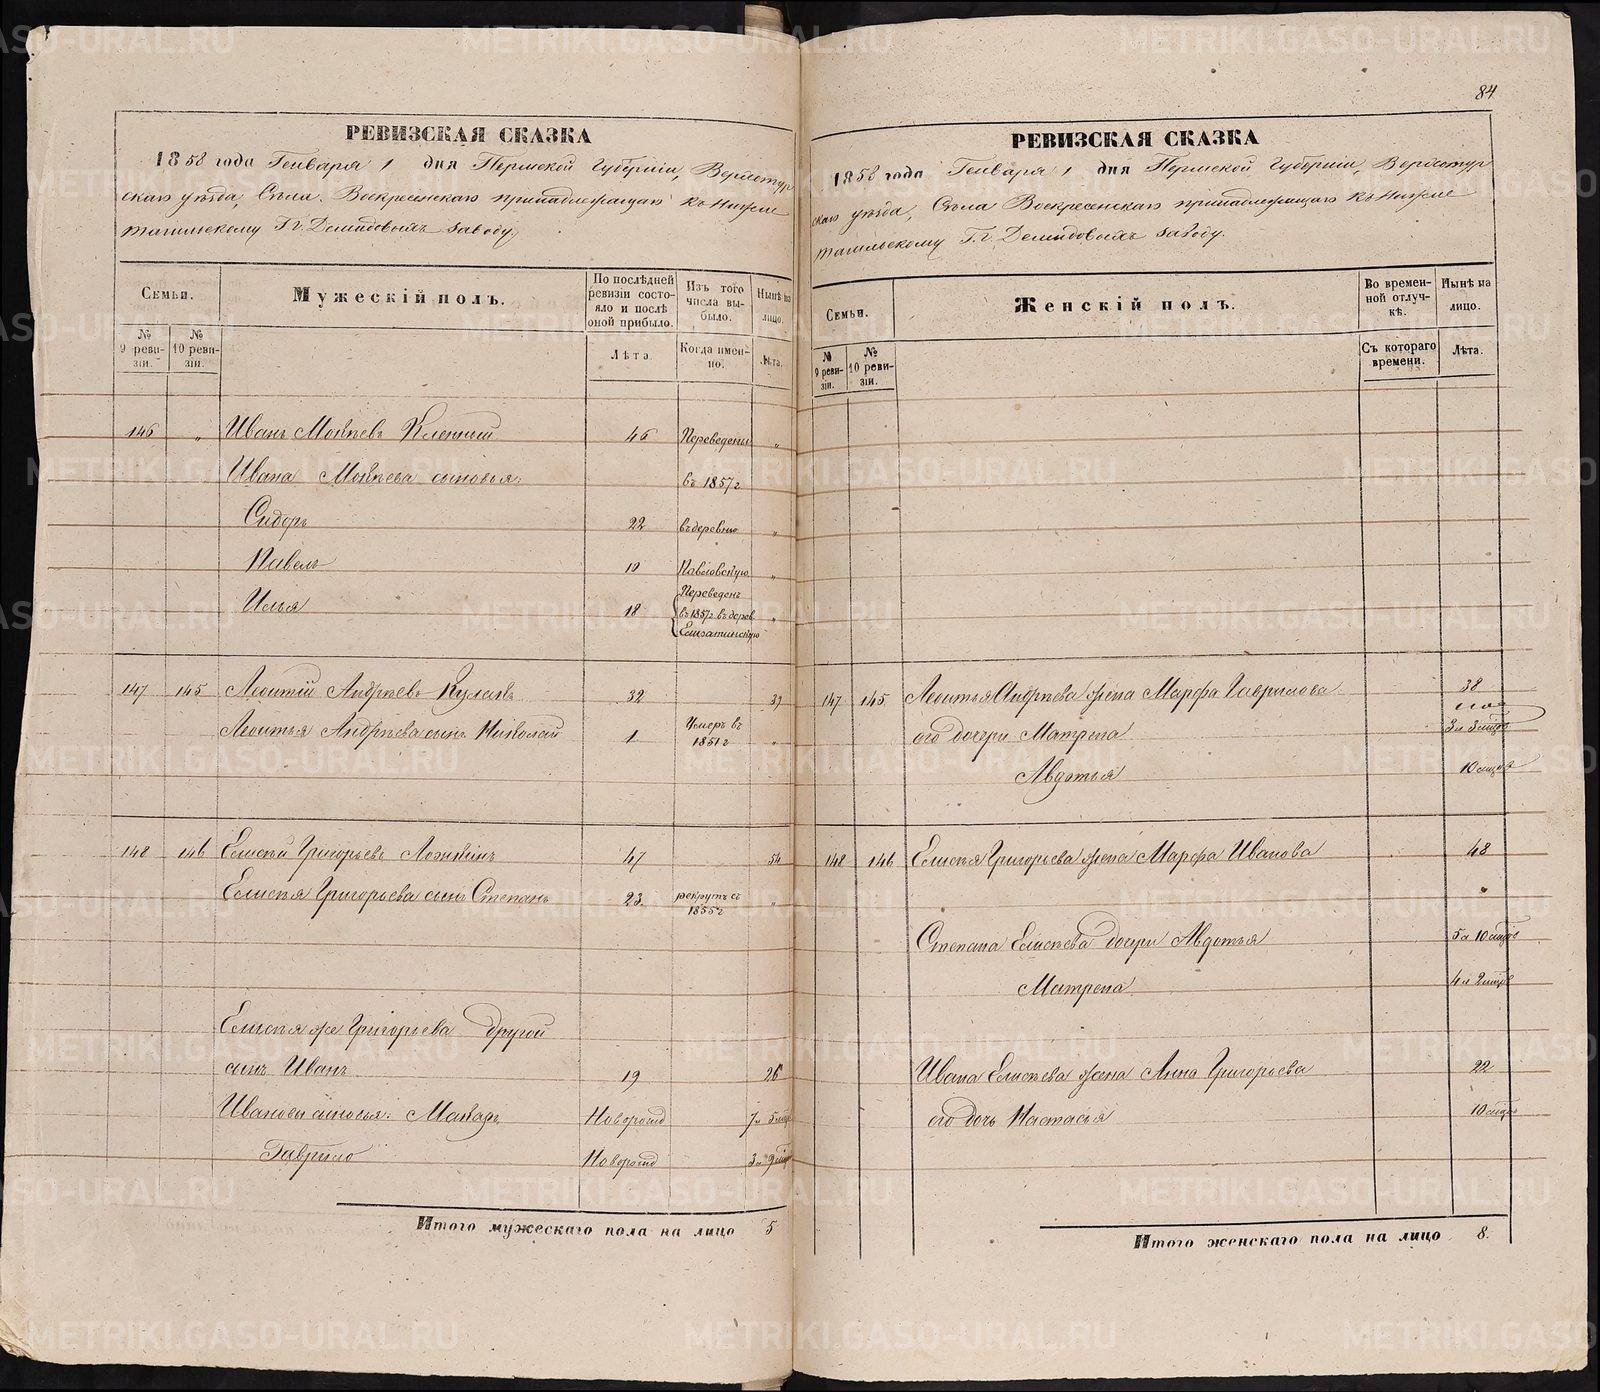 РЕВИЗСКАЯ СКАЗКА
1858 года Генваря 1 дня Пермской Губерніи, Верхотур
скаго уѣзда, Села Воскресенскаго принадлежащаго къ Нижне
тагильскому Г.г. Демидовыхъ заводу.
Семьи.
Мужескій полъ.
По послѣдней ревизіи состояло и послѣ оной прибыло.
Изъ того числа выбыло.
Нынѣ на лицо.
№ 9 ревизіи.
№ 10 ревизіи.
Лѣта.
Когда именно.
Лѣта.
146 „ Иванъ Моѵсеевъ 46 Переведены „
Ивана Моѵсеева сыновья: въ 1857 г
Сидоръ 22 въ деревню „
Павелъ 19 Павловскую „
Илья 18 Переведенъ въ 1857 г въ дерев „
147 145 Леонтій Андреевъ Кулакъ 32 39
Леонтья Андреева сынъ Николай 1 Умеръ въ 1851 г „
148 146 Елисѣй Григорьевъ Ложкинъ 47 54
Елисѣя Григорьева сынъ Степанъ 23 рекрутъ съ 1855 г „
Елисѣя же Григорьева другой
сынъ Иванъ 19 26
Ивановы сыновья: Макаръ Новорожд 7 л 5 мцов
Гаврило Новорожд 3 л 9 мцов
Итого мужескаго пола на лицо 5
84
РЕВИЗСКАЯ СКАЗКА
1858 года Генваря 1 дня Пермской Губерніи, Верхотур
скаго уѣзда, Села Воскресенскаго принадлежащаго къ Нижне
тагильскому Г.г. Демидовыхъ заводу.
Семьи.
Женскій полъ.
Во временной отлучкѣ.
Нынѣ на лицо.
№ 9 ревизіи.
№ 10 ревизіи.
Съ котораго времени.
Лѣта.
147 145 Леонтья Андреева жена Марфа Гаврилова 38
его дочери Матрена 3 л 3 мцов
Авдотья 10 мцов
148 146 Елисѣя Григорьева жена Марфа Иванова 48
Степана Елисѣева дочери Авдотья 5 л 10 мцов
Матрена 4 л 2 мцов
Ивана Елисѣева жена Анна Григорьева 22
его дочь Настасья 10 мцов
Итого женскаго пола на лицо 8.
METRIKI.GASO-URAL.RU